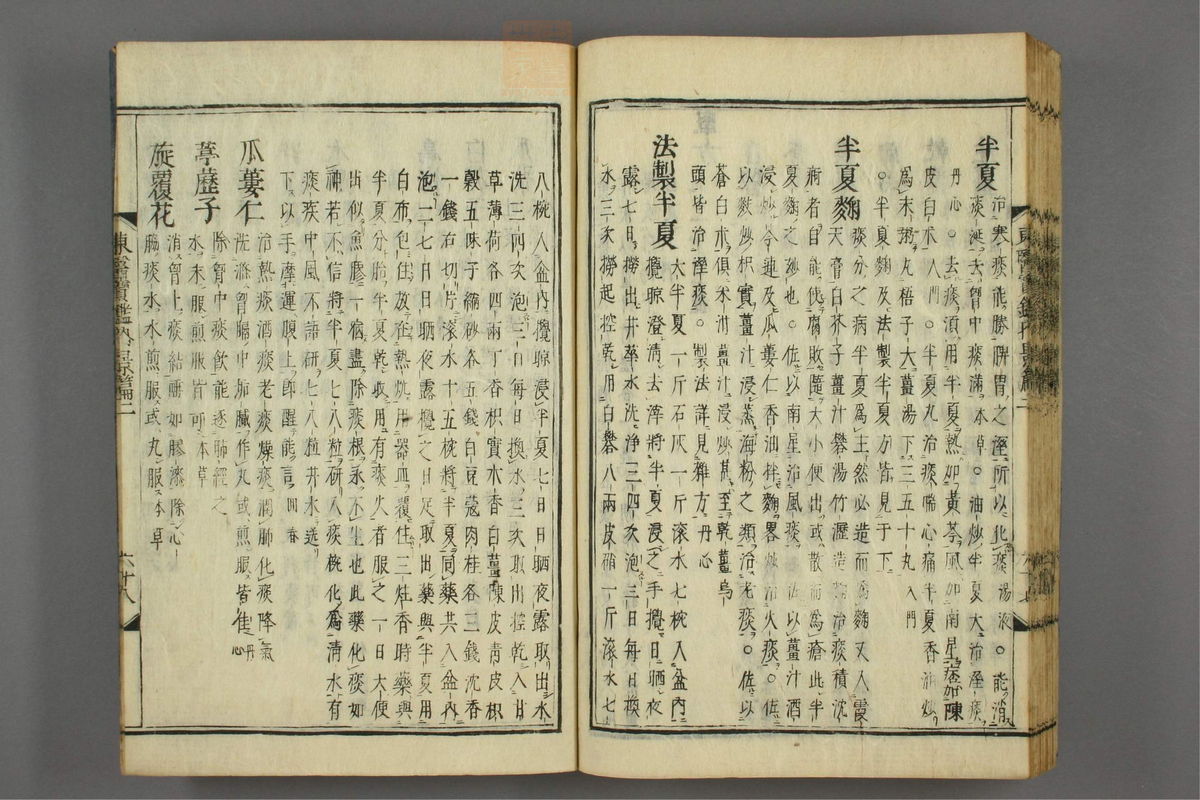 半夏 治寒痰能勝脾胃之溼所以化痰湯液○能消
痰涎去胷中痰滿本草○油炒半夏大治溼痰
丹心○去痰須用半夏熱加黃芩風加南星痞加陳
皮白朮入門○半夏丸治痰喘心痛半夏香油炒
爲末粥丸梧子大薑湯下三五十丸入門
○半夏麴及法製半夏方皆見于下
半夏麴 痰分之病半夏爲主然必造而爲麴又入霞
天膏白芥子薑汁礬湯竹瀝造麴治痰積沈
痾者自能使腐敗隨大小便出或散而爲瘡此半
夏麴之玅也○佐以南星治風痰
浸炒芩連及瓜蔞仁香油拌麴畧炒治火痰○佐
以麩炒枳實薑汁浸蒸海粉之類治老痰○佐以
蒼白朮俱米泔薑汁浸炒甚至乾薑烏
頭皆治溼痰○製法詳見雜方丹心
法製半夏 大半夏一斤石灰一斤滾水七椀入盆內
攪晾澄淸去滓將半夏浸之手攪日晒夜
露七日撈出井華水洗淨三四次泡三日每日換
水三次撈起控乾用白礬八兩皮硝一斤滾水七
八椀入盆內攪晾浸半夏七日日晒夜露取出水
洗三四次泡三日每日換水三次取出控乾入甘
草薄荷各四兩丁香枳實木香白薑陳皮靑皮枳
殼五味子縮砂各五錢白豆蔻肉桂各三錢沈香
一錢右切片滾水十五椀將半夏同藥共入盆內
泡二七日日晒夜露攪之日足取出藥與半夏用
白布包住放在熱炕用器皿覆住三炷香時藥與
半夏分胎半夏乾收用有痰火者服之一日大便
出似魚膠一宿盡除痰根永不生也此藥化痰如
神若不信將半夏七八粒硏入痰椀化爲淸水有
痰疾中風不語硏七八粒井水送
下以手摩運腹上卽醒能言回春
瓜蔞仁 治熱痰酒痰老痰燥痰潤肺化痰降氣
洗滌胷膈中垢膩作丸或煎服皆佳丹心
葶藶子 除胷中痰飮能逐肺經之
水末服煎服皆可本草
旋覆花 消胷上痰結唾如膠漆除心
膈痰水水煎服或丸服本草